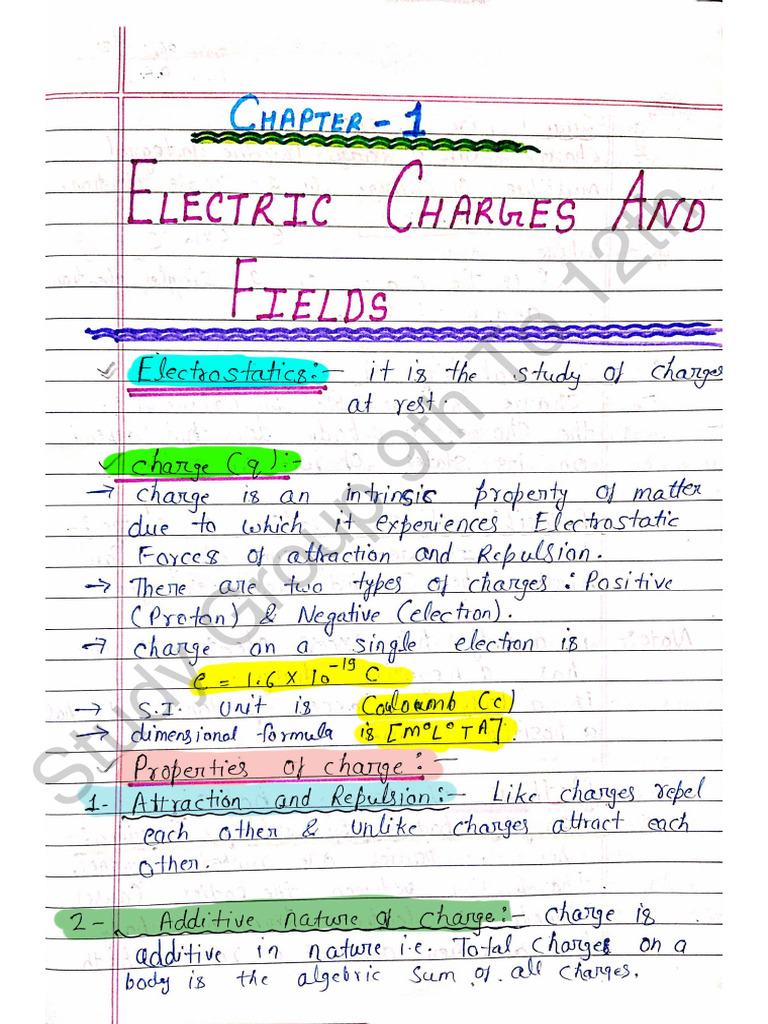 CHAPTER - 1
ELECTRIC CHARGES AND
FIELDS
Electrostatics:- it is the study of charges
at rest.
charge (q):-
→ charge is an intrinsic property of matter
due to which it experiences Electrostatic
Forces of attraction and Repulsion.
→ There are two types of charges: Positive
(Proton) & Negative (electron).
→ charge on a single electron is
e = 1.6 X 10⁻¹⁹ C
→ S.I. Unit is Couloumb (c)
→ dimensional formula is [M⁰L⁰TA].
Properties of charge:-
1- Attraction and Repulsion:- Like charges repel
each other & Unlike charges attract each
other.
2- Additive nature of charge:- charge is
additive in nature i.e. Total charges on a
body is the algebric sum of all charges.
Study Group 9th To 12th